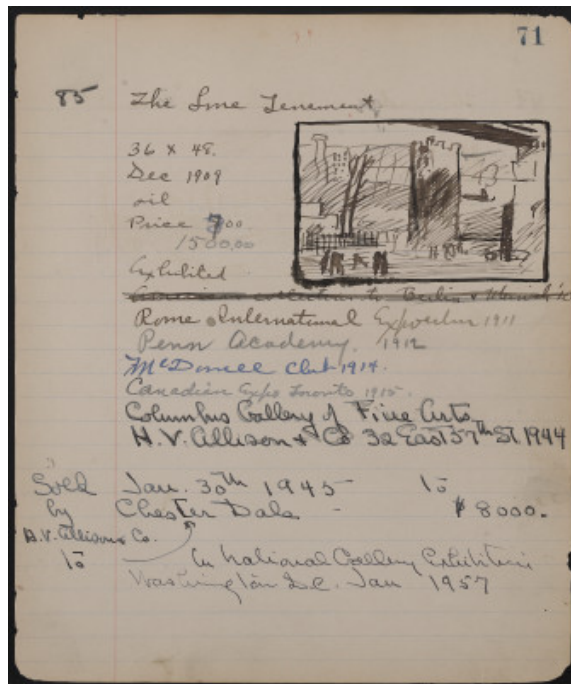 71
85 The Lone Tenement
36 x 48.
Dec 1909
oil
Price 700
1500.00
Exhibited
collection to Berlin & Munich
Rome International Exposition 1911
Penn Academy. 1912
McDowell Club 1914.
Canadian Expo Toronto 1915.
Columbus Gallery of Fine Arts
H.V. Allison & Co 32 East 57th St 1944
Sold Jan. 30th 1945 to
by Chester Dale - $8000.
H.V. Allison & Co.
to In National Gallery Exhibition
Washington D.C. Jan 1957